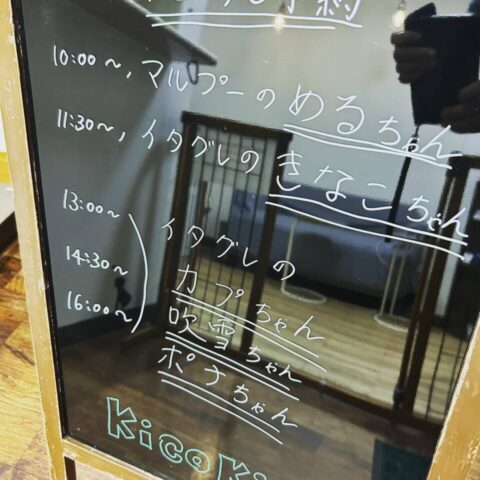 予約
10:00～, マルプーの めるちゃん
11:30～, イタグレの きなこちゃん
13:00～
14:30～
16:00～
イタグレの
カプちゃん
吹雪ちゃん
ポテちゃん
KicoKi